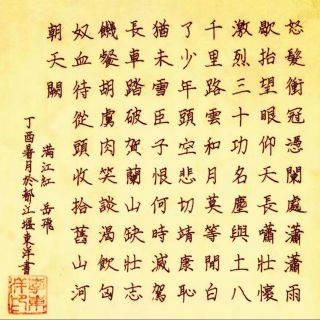 怒髮衝冠憑闌處瀟瀟雨
歇抬望眼仰天長嘯壯懷
激烈三十功名塵與土八
千里路雲和月莫等閒白
了少年頭空悲切靖康恥
猶未雪臣子恨何時滅駕
長車踏破賀蘭山缺壯志
饑餐胡虜肉笑談渴飲匈
奴血待從頭收拾舊山河
朝天闕
滿江紅 岳飛
丁酉暑月於都江堰東洋書
李東洋印